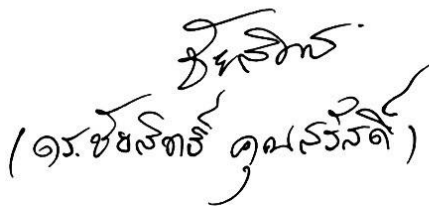 ชัยสิทธิ์
(ดร.ชัยสิทธิ์ คุณสวัสดิ์)